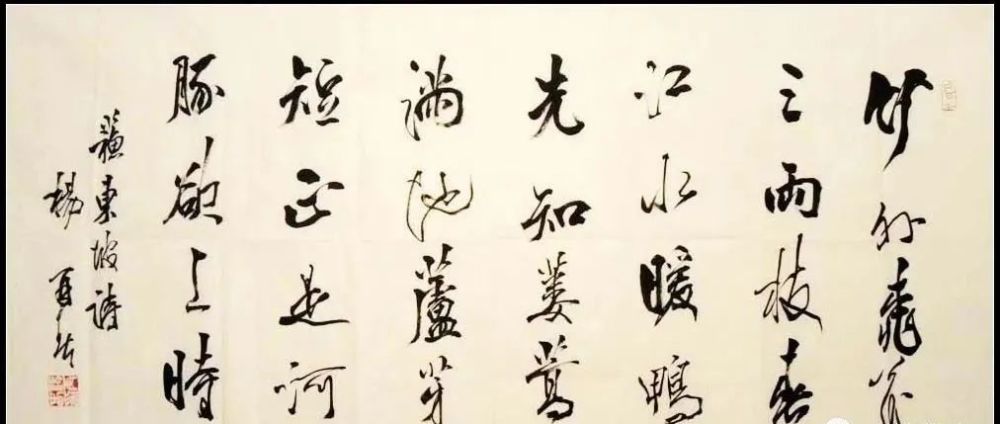 竹外桃花
三兩枝春
江水暖鴨
先知蔞蒿
滿地蘆芽
短正是河
豚欲上時
蘇東坡詩
楊